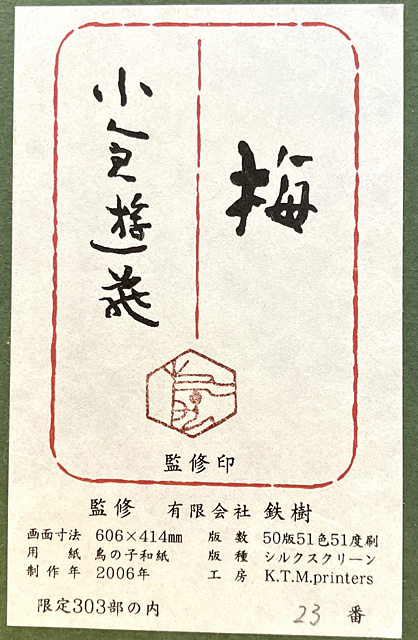 梅
小倉遊亀
監修印
監修 有限会社 鉄樹
画面寸法 606×414mm 版数 50版51色51度刷
用紙 鳥の子和紙 版種 シルクスクリーン
制作年 2006年 工房 K.T.M.printers
限定303部の内 23 番